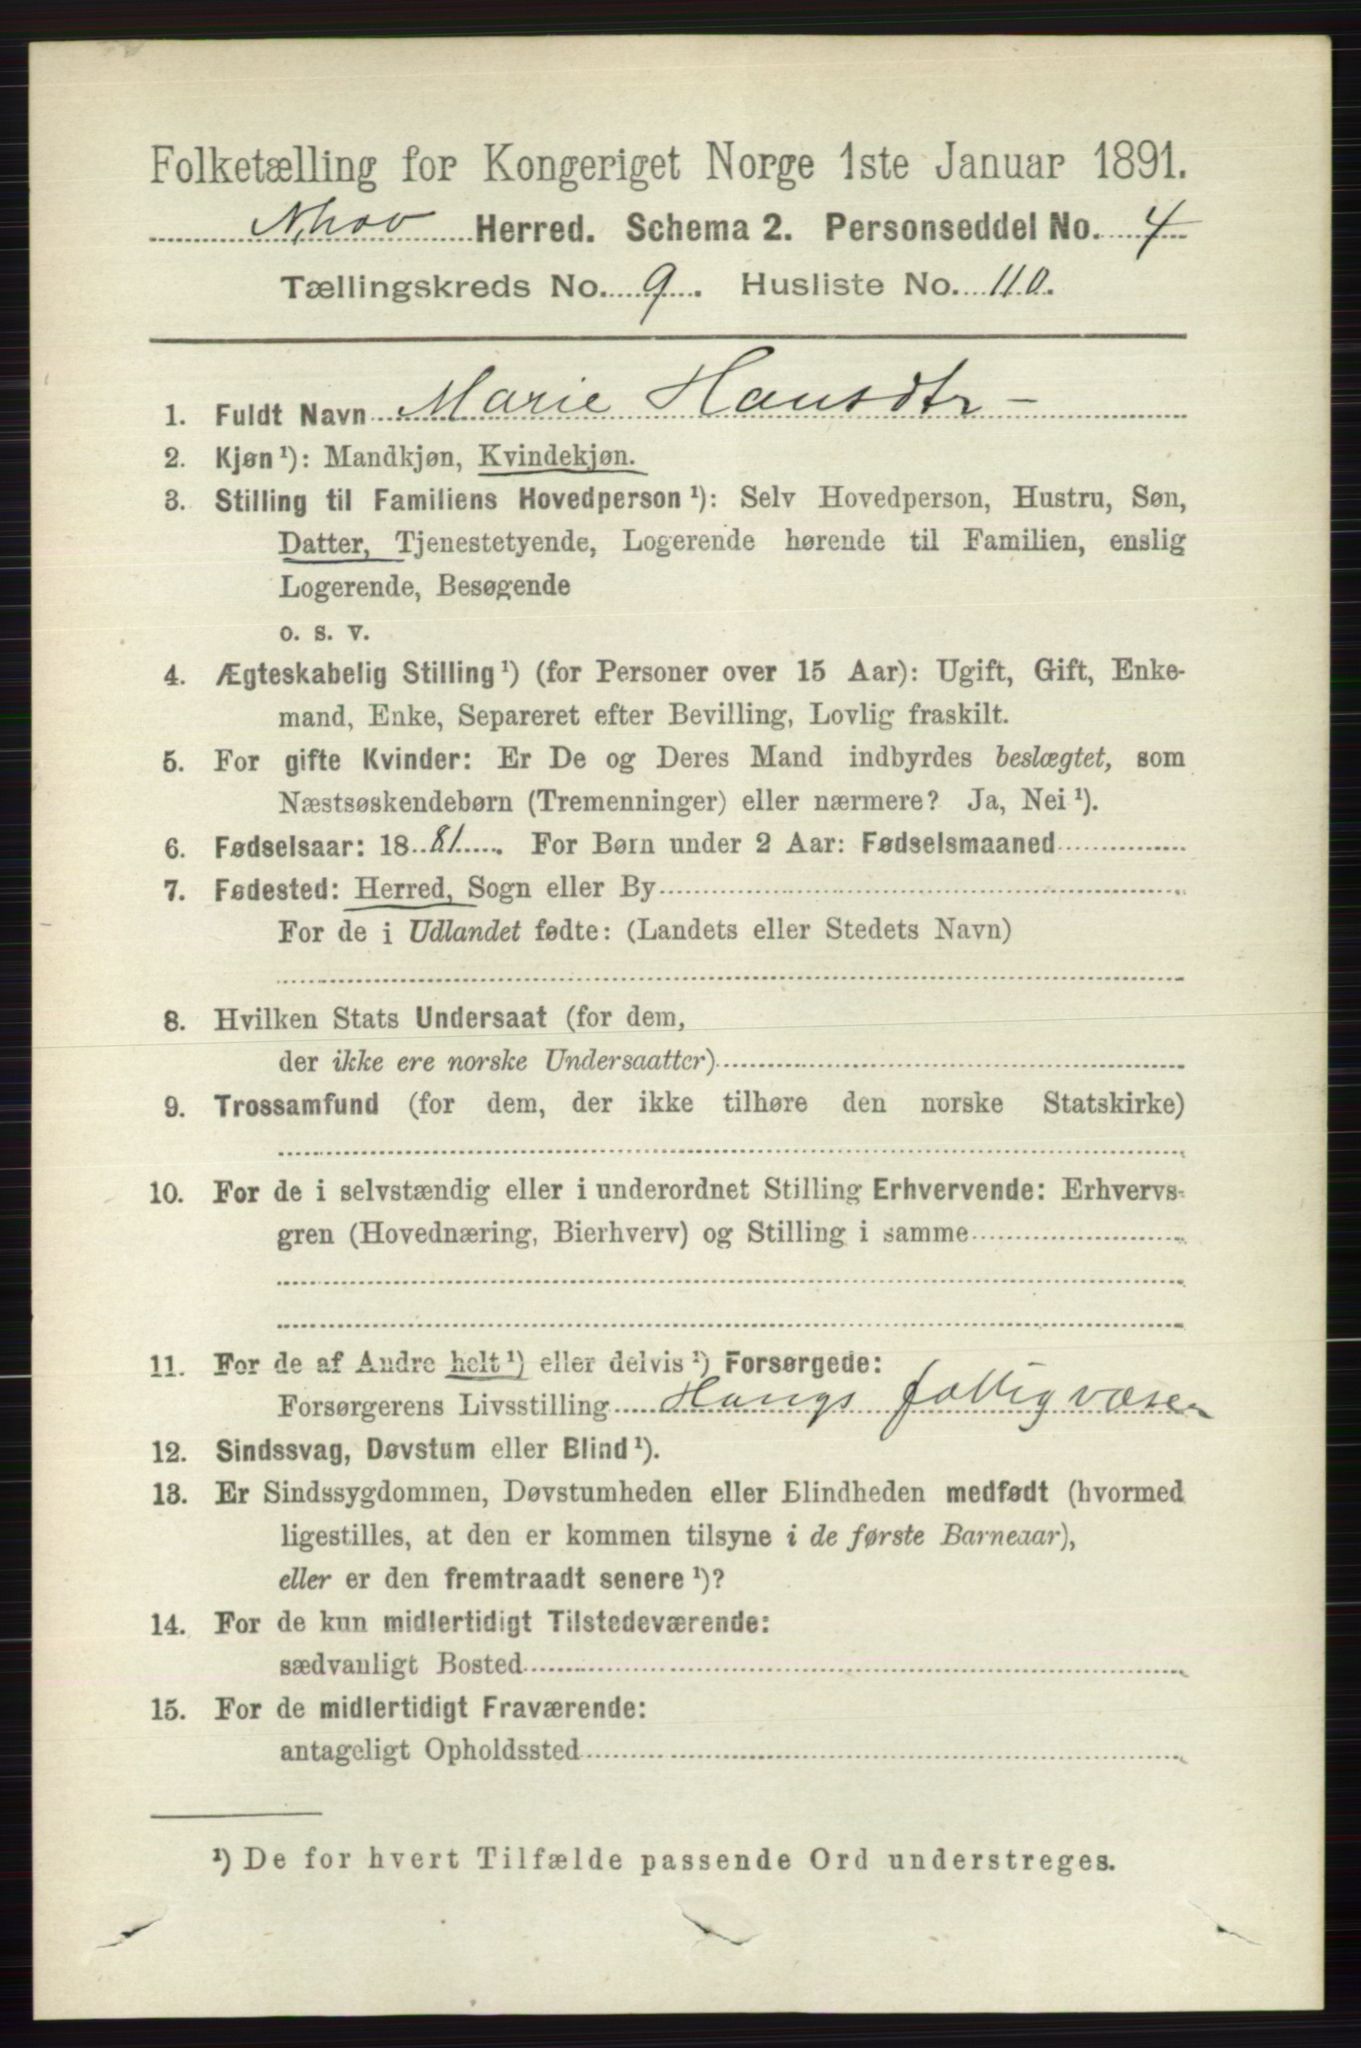 Folketælling for Kongeriget Norge 1ste Januar 1891.
Nhov Herred. Schema 2. Personseddel No. 4
Tællingskreds No. 9. Husliste No. 110.
1. Fuldt Navn Marie Hansdtr -
2. Kjøn ¹): Mandkjøn, Kvindekjøn.
3. Stilling til Familiens Hovedperson ¹): Selv Hovedperson, Hustru, Søn,
Datter, Tjenestetyende, Logerende hørende til Familien, enslig
Logerende, Besøgende
o. s. v.
4. Ægteskabelig Stilling ¹) (for Personer over 15 Aar): Ugift, Gift, Enke-
mand, Enke, Separeret efter Bevilling, Lovlig fraskilt.
5. For gifte Kvinder: Er De og Deres Mand indbyrdes beslægtet, som
Næstsøskendebørn (Tremenninger) eller nærmere? Ja, Nei ¹).
6. Fødselsaar: 1881. For Børn under 2 Aar: Fødselsmaaned
7. Fødested: Herred, Sogn eller By
For de i Udlandet fødte: (Landets eller Stedets Navn)
8. Hvilken Stats Undersaat (for dem,
der ikke ere norske Undersaatter)
9. Trossamfund (for dem, der ikke tilhøre den norske Statskirke)
10. For de i selvstændig eller i underordnet Stilling Erhvervende: Erhvervs-
gren (Hovednæring, Bierhverv) og Stilling i samme
11. For de af Andre helt ¹) eller delvis ¹) Forsørgede:
Forsørgerens Livsstilling Haugs fattigvæsen
12. Sindssvag, Døvstum eller Blind ¹).
13. Er Sindssygdommen, Døvstumheden eller Blindheden medfødt (hvormed
ligestilles, at den er kommen tilsyne i de første Barneaar),
eller er den fremtraadt senere ¹)?
14. For de kun midlertidigt Tilstedeværende:
sædvanligt Bosted
15. For de midlertidigt Fraværende:
antageligt Opholdssted
¹) De for hvert Tilfælde passende Ord understreges.